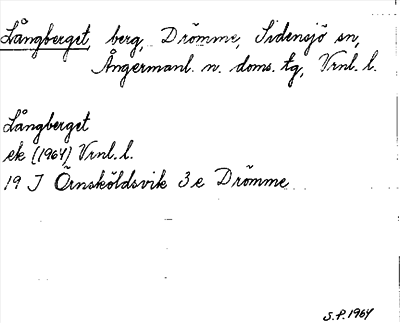 Långberget, berg, Drömme, Sidensjö sn,
Ångermanl. n. doms. tg, Vrnl. l.
Långberget
ek (1964) Vrnl. l.
19 J Örnsköldsvik 3 e Drömme
S.P. 1964